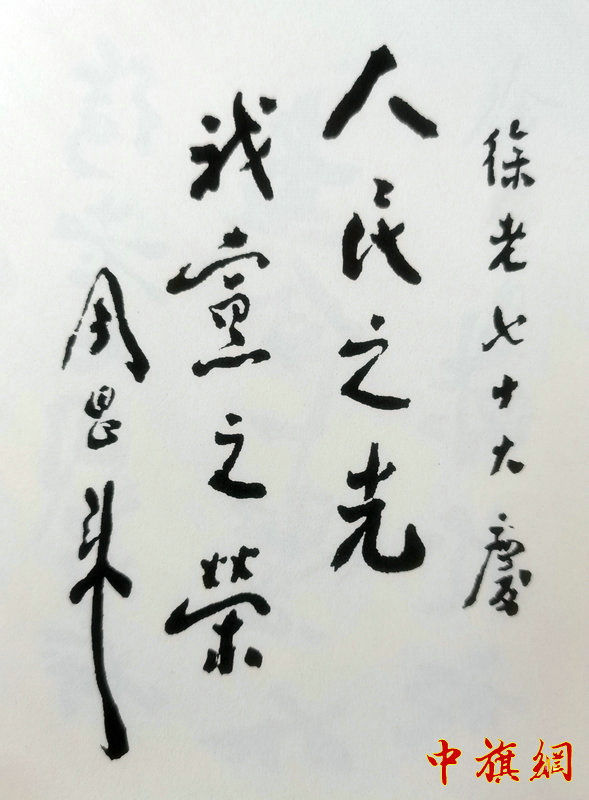 徐老七十大慶
人民之光
我黨之榮
周恩来
中旗網